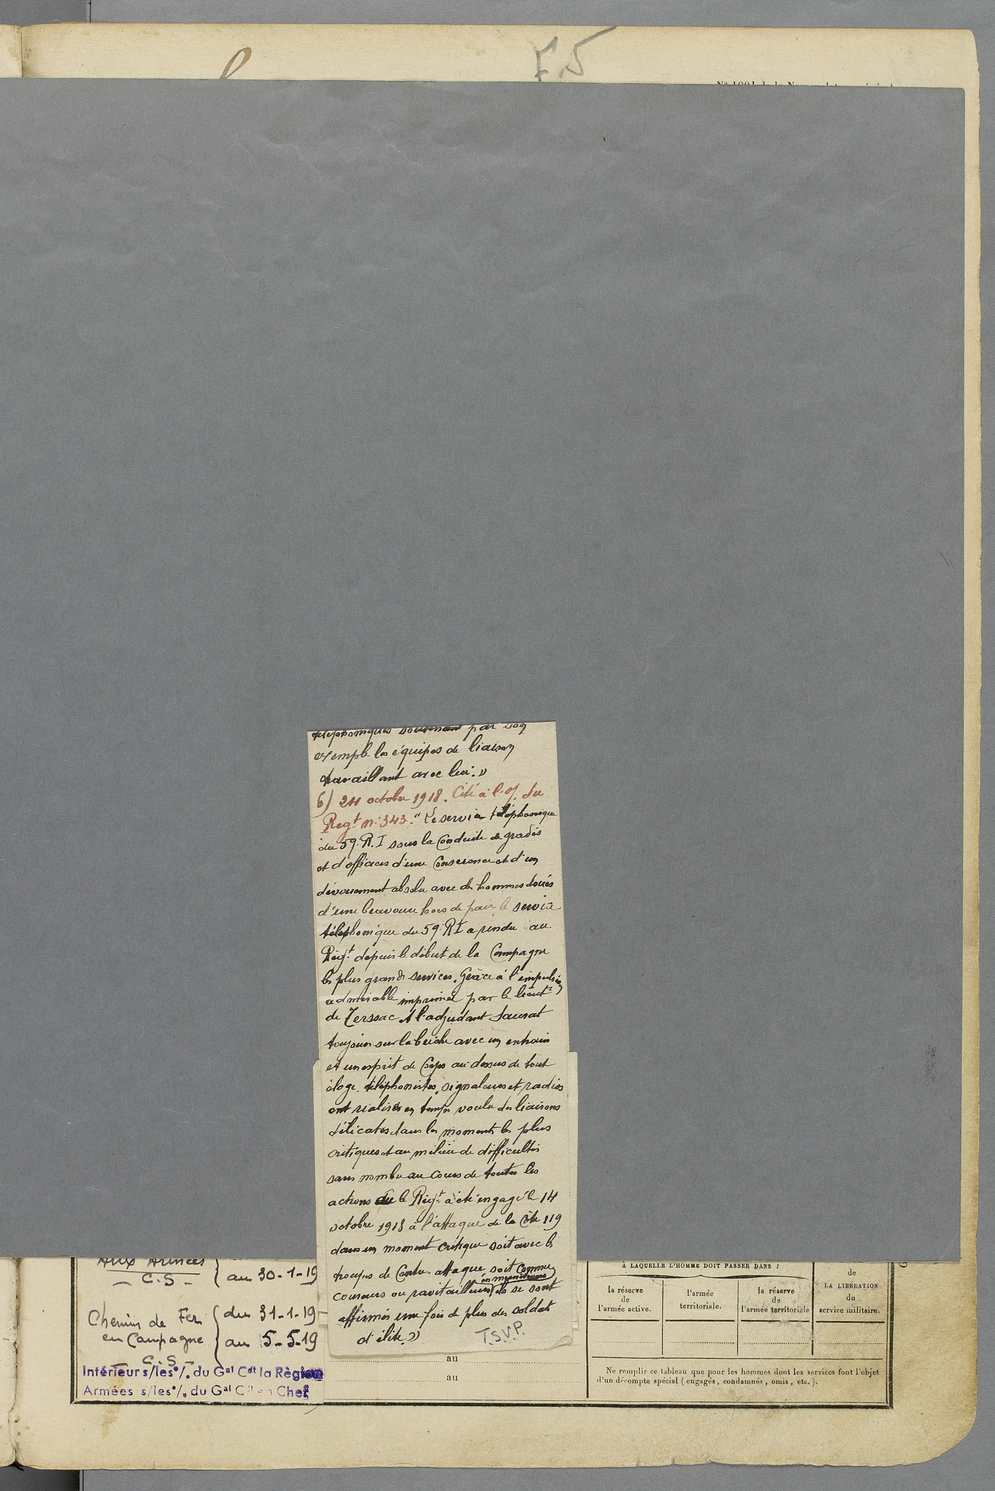 F.5
téléphoniques soutenant par son
exemple les équipes de liaison
travaillant avec lui."
6) 24 octobre 1918. Cité à l'o/ du
Regt n° 343. "Le service téléphonique
du 59e R.I sous la Conduite de gradés
et d'officiers d'une Conscience et d'un
dévouement absolu avec des hommes doués
d'une bravoure hors de pair le service
téléphonique du 59e RI a rendu au
Regt depuis le début de la Campagne
les plus grands services. Grâce à l'impulsion
admirable imprimée par le lieutt
de Zerssac et l'adjudant Saurat
toujours sur la brèche avec un entrain
et un esprit de Corps au dessus de tout
éloge. téléphonistes, signaleurs et radios
ont réalisés en temps voulu des liaisons
délicates dans les moments les plus
critiques et au milieu de difficultés
sans nombre au cours de toutes les
actions où le Regt a été engagé le 14
octobre 1918 à l'attaque de la Côte 119
dans un moment critique soit avec les
troupes de Contre-attaque soit Comme
coureurs ou ravitailleurs en munitions ils se sont
affirmés une fois de plus des soldats
d'élite."
T.S.V.P.
Aux Armées
C.S.
au 30-1-19
Chemin de Fer
en Campagne
C.S.
du 31-1-19
au 5-5-19
Intérieur s/les °/. du Gal Cdt la Région
Armées s/les °/. du Gal Ct en Chef
au
au
À LAQUELLE L'HOMME DOIT PASSER DANS :
la réserve
de
l'armée active.
l'armée
territoriale.
la réserve
de
l'armée territoriale
de
LA LIBÉRATION
du
service militaire.
Ne remplir ce tableau que pour les hommes dont les services font l'objet
d'un décompte spécial (engagés, condamnés, omis, etc.).